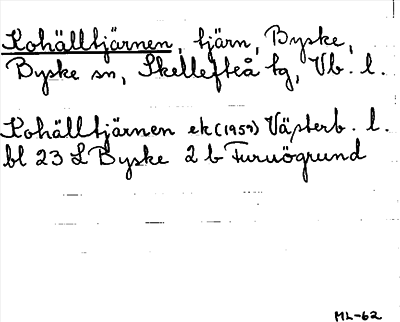 Kohälltjärnen, tjärn, Byske,
Byske sn, Skellefteå tg, Vb. l.
Kohälltjärnen ek (1959) Västerb. l.
bl 23 L Byske 2 b Furuögrund
ML-62